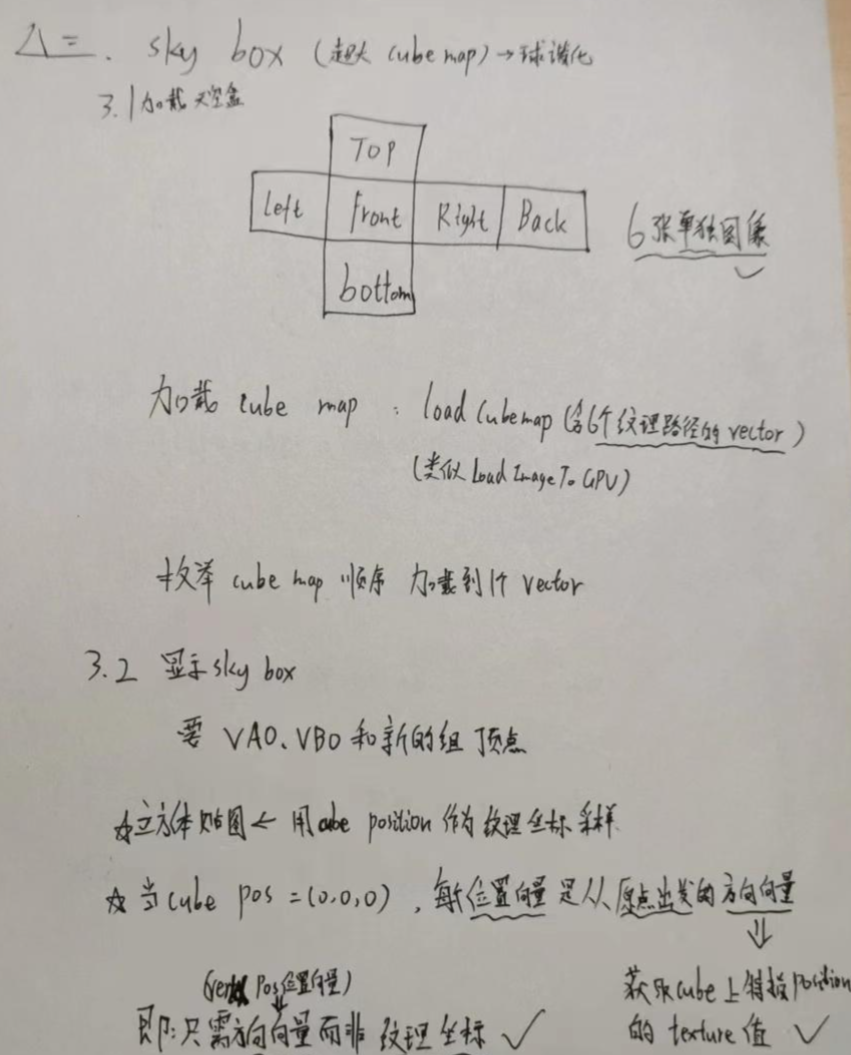 三. sky box (超大 cube map) → 球谐化
3.1 加载天空盒
TOP
Left Front Right Back
6张单独图像
bottom
加载 cube map : load Cubemap (含6个纹理路径的 vector)
(类似 Load Image To GPU)
枚举 cube map 顺序 加载到1个 vector
3.2 显示 sky box
要 VAO、VBO 和新的组顶点
☆立方体贴图 ← 用 cube position 作为纹理坐标采样
☆ 当 cube pos = (0,0,0) , 每个位置向量是从原点出发的方向向量
⇓
(vertex Pos位置向量)
获取 cube 上特定 position
即: 只需方向向量而非 纹理坐标 ✓
的 texture 值 ✓